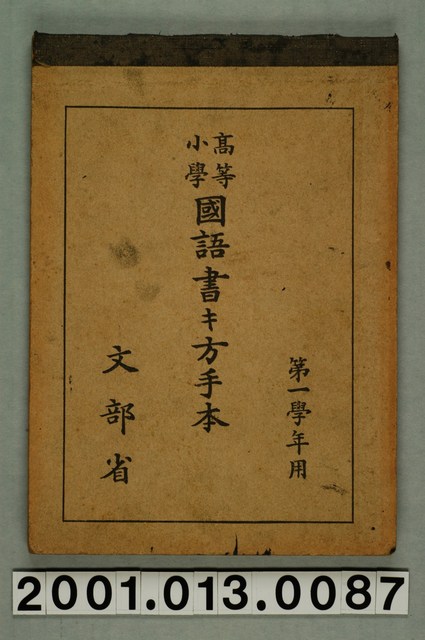 第一學年用
高等
小學
國語書キ方手本
文部省
2001.013.0087